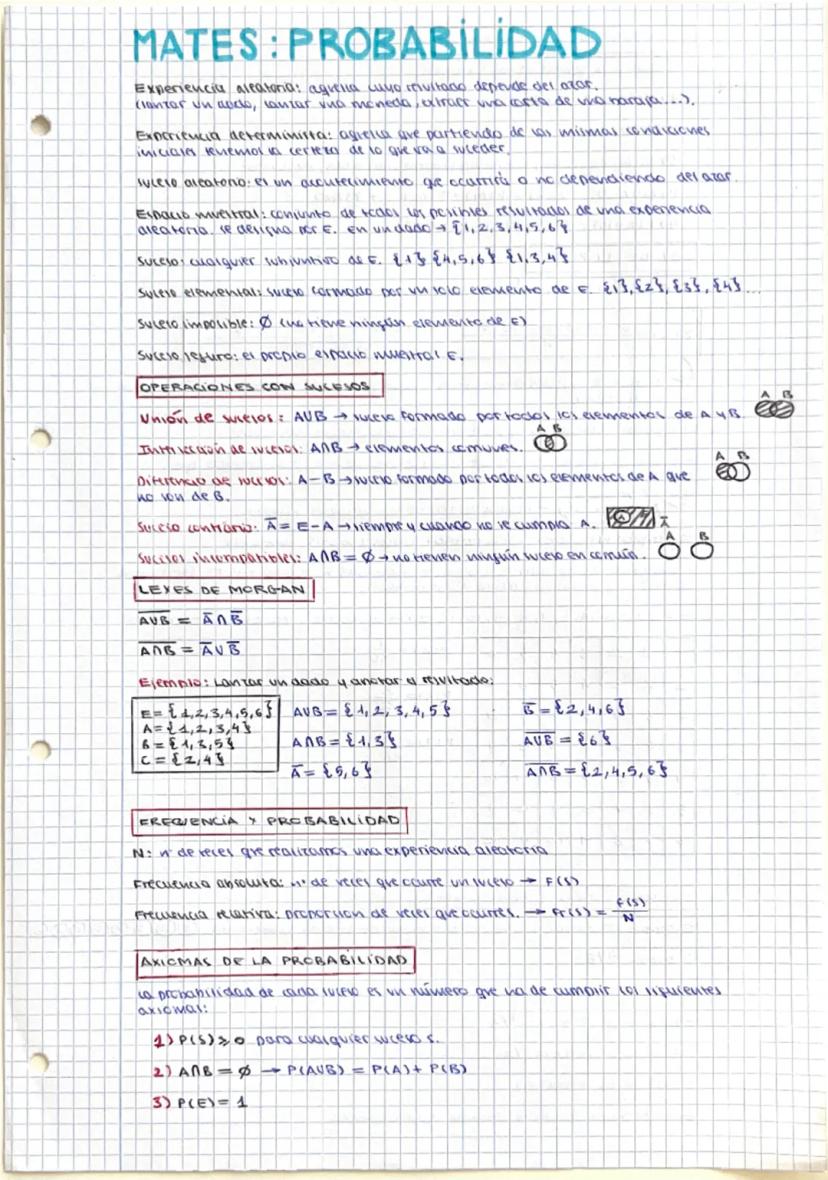 MATES: PROBABILIDAD
Experiencia aleatoria: aquella cuyo resultado depende del azar.
(lanzar un dado, lanzar una moneda, extraer una carta de una baraja...).
Experiencia determinista: aquella que partiendo de las mismas condiciones
iniciales tenemos la certeza de lo que va a suceder.
Suceso aleatorio: es un acontecimiento que ocurrirá o no dependiendo del azar.
Espacio muestral: conjunto de todos los posibles resultados de una experiencia
aleatoria. se designa por E. En un dado → {1,2,3,4,5,6}
Suceso: cualquier subconjunto de E. {1} {4,5,6} {1,3,4}
Suceso elemental: suceso formado por un solo elemento de E. {1}, {2}, {3}, {4}...
Suceso imposible: Ø (no tiene ningún elemento de E)
Suceso seguro: el propio espacio muestral E.
OPERACIONES CON SUCESOS
A B
Unión de sucesos: A∪B → suceso formado por todos los elementos de A y B.
A B
Intersección de sucesos: A∩B → elementos comunes.
A B
Diferencia de sucesos: A-B → suceso formado por todos los elementos de A que
no son de B.
Suceso contrario: A̅ = E-A → siempre y cuando no se cumpla A. A A̅
A B
Sucesos incompatibles: A∩B = Ø → no tienen ningún suceso en común.
LEYES DE MORGAN
A̅∪̅B̅ = A̅ ∩ B̅
A̅∩̅B̅ = A̅ ∪ B̅
Ejemplo: Lanzar un dado y anotar el resultado:
E = {1,2,3,4,5,6} A∪B = {1,2,3,4,5} B̅ = {2,4,6}
A = {1,2,3,4}
B = {1,3,5} A∩B = {1,3} A̅∪̅B̅ = {6}
C = {2,4}
A̅ = {5,6} A̅∩̅B̅ = {2,4,5,6}
FRECUENCIA Y PROBABILIDAD
N: nº de veces que realizamos una experiencia aleatoria
Frecuencia absoluta: nº de veces que ocurre un suceso → F(S)
Frecuencia relativa: proporcion de veces que ocurres. → Fr(S) = F(S)/N
AXIOMAS DE LA PROBABILIDAD
La probabilidad de cada suceso es un número que ha de cumplir los siguientes
axiomas:
1) P(S) ≥ 0 para cualquier suceso S.
2) A∩B = Ø → P(A∪B) = P(A) + P(B)
3) P(E) = 1